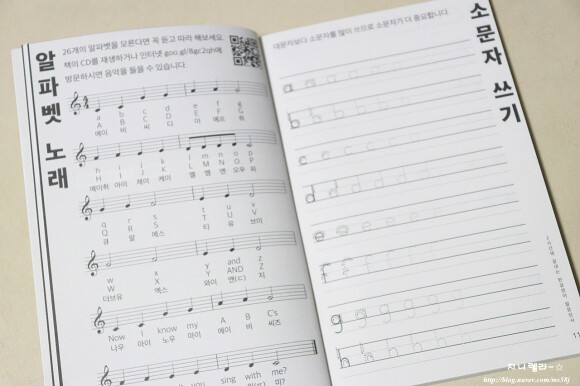 알파벳 노래
26개의 알파벳을 모른다면 꼭 듣고 따라 해보세요.
책의 CD를 재생하거나 인터넷 goo.gl/8gc2qh에
방문하시면 음악을 들을 수 있습니다.
a b c d e f g
A B C D E F G
에이 비 씨 디 이 에프 쥐
h i j k l m n o p
H I J K L M N O P
에이취 아이 제이 케이 엘 엠 엔 오우 피
q r s t u v
Q R S T U V
큐 알 에스 티 유 브이
w x y and z
W X Y AND Z
더브유 엑스 와이 앤(ㄷ) 지
Now I know my A B C's
나우 아이 노우 마이 에이 비 씨즈
you sing with me?
소문자 쓰기
대문자보다 소문자를 많이 쓰므로 소문자가 더 중요합니다.
a a a a a
b b b b b
c c c c c
d d d d d
e e e e e
f f f f f
g g g g g
h h h h h
11
지니렐라~☆
http://blog.naver.com/ms18j